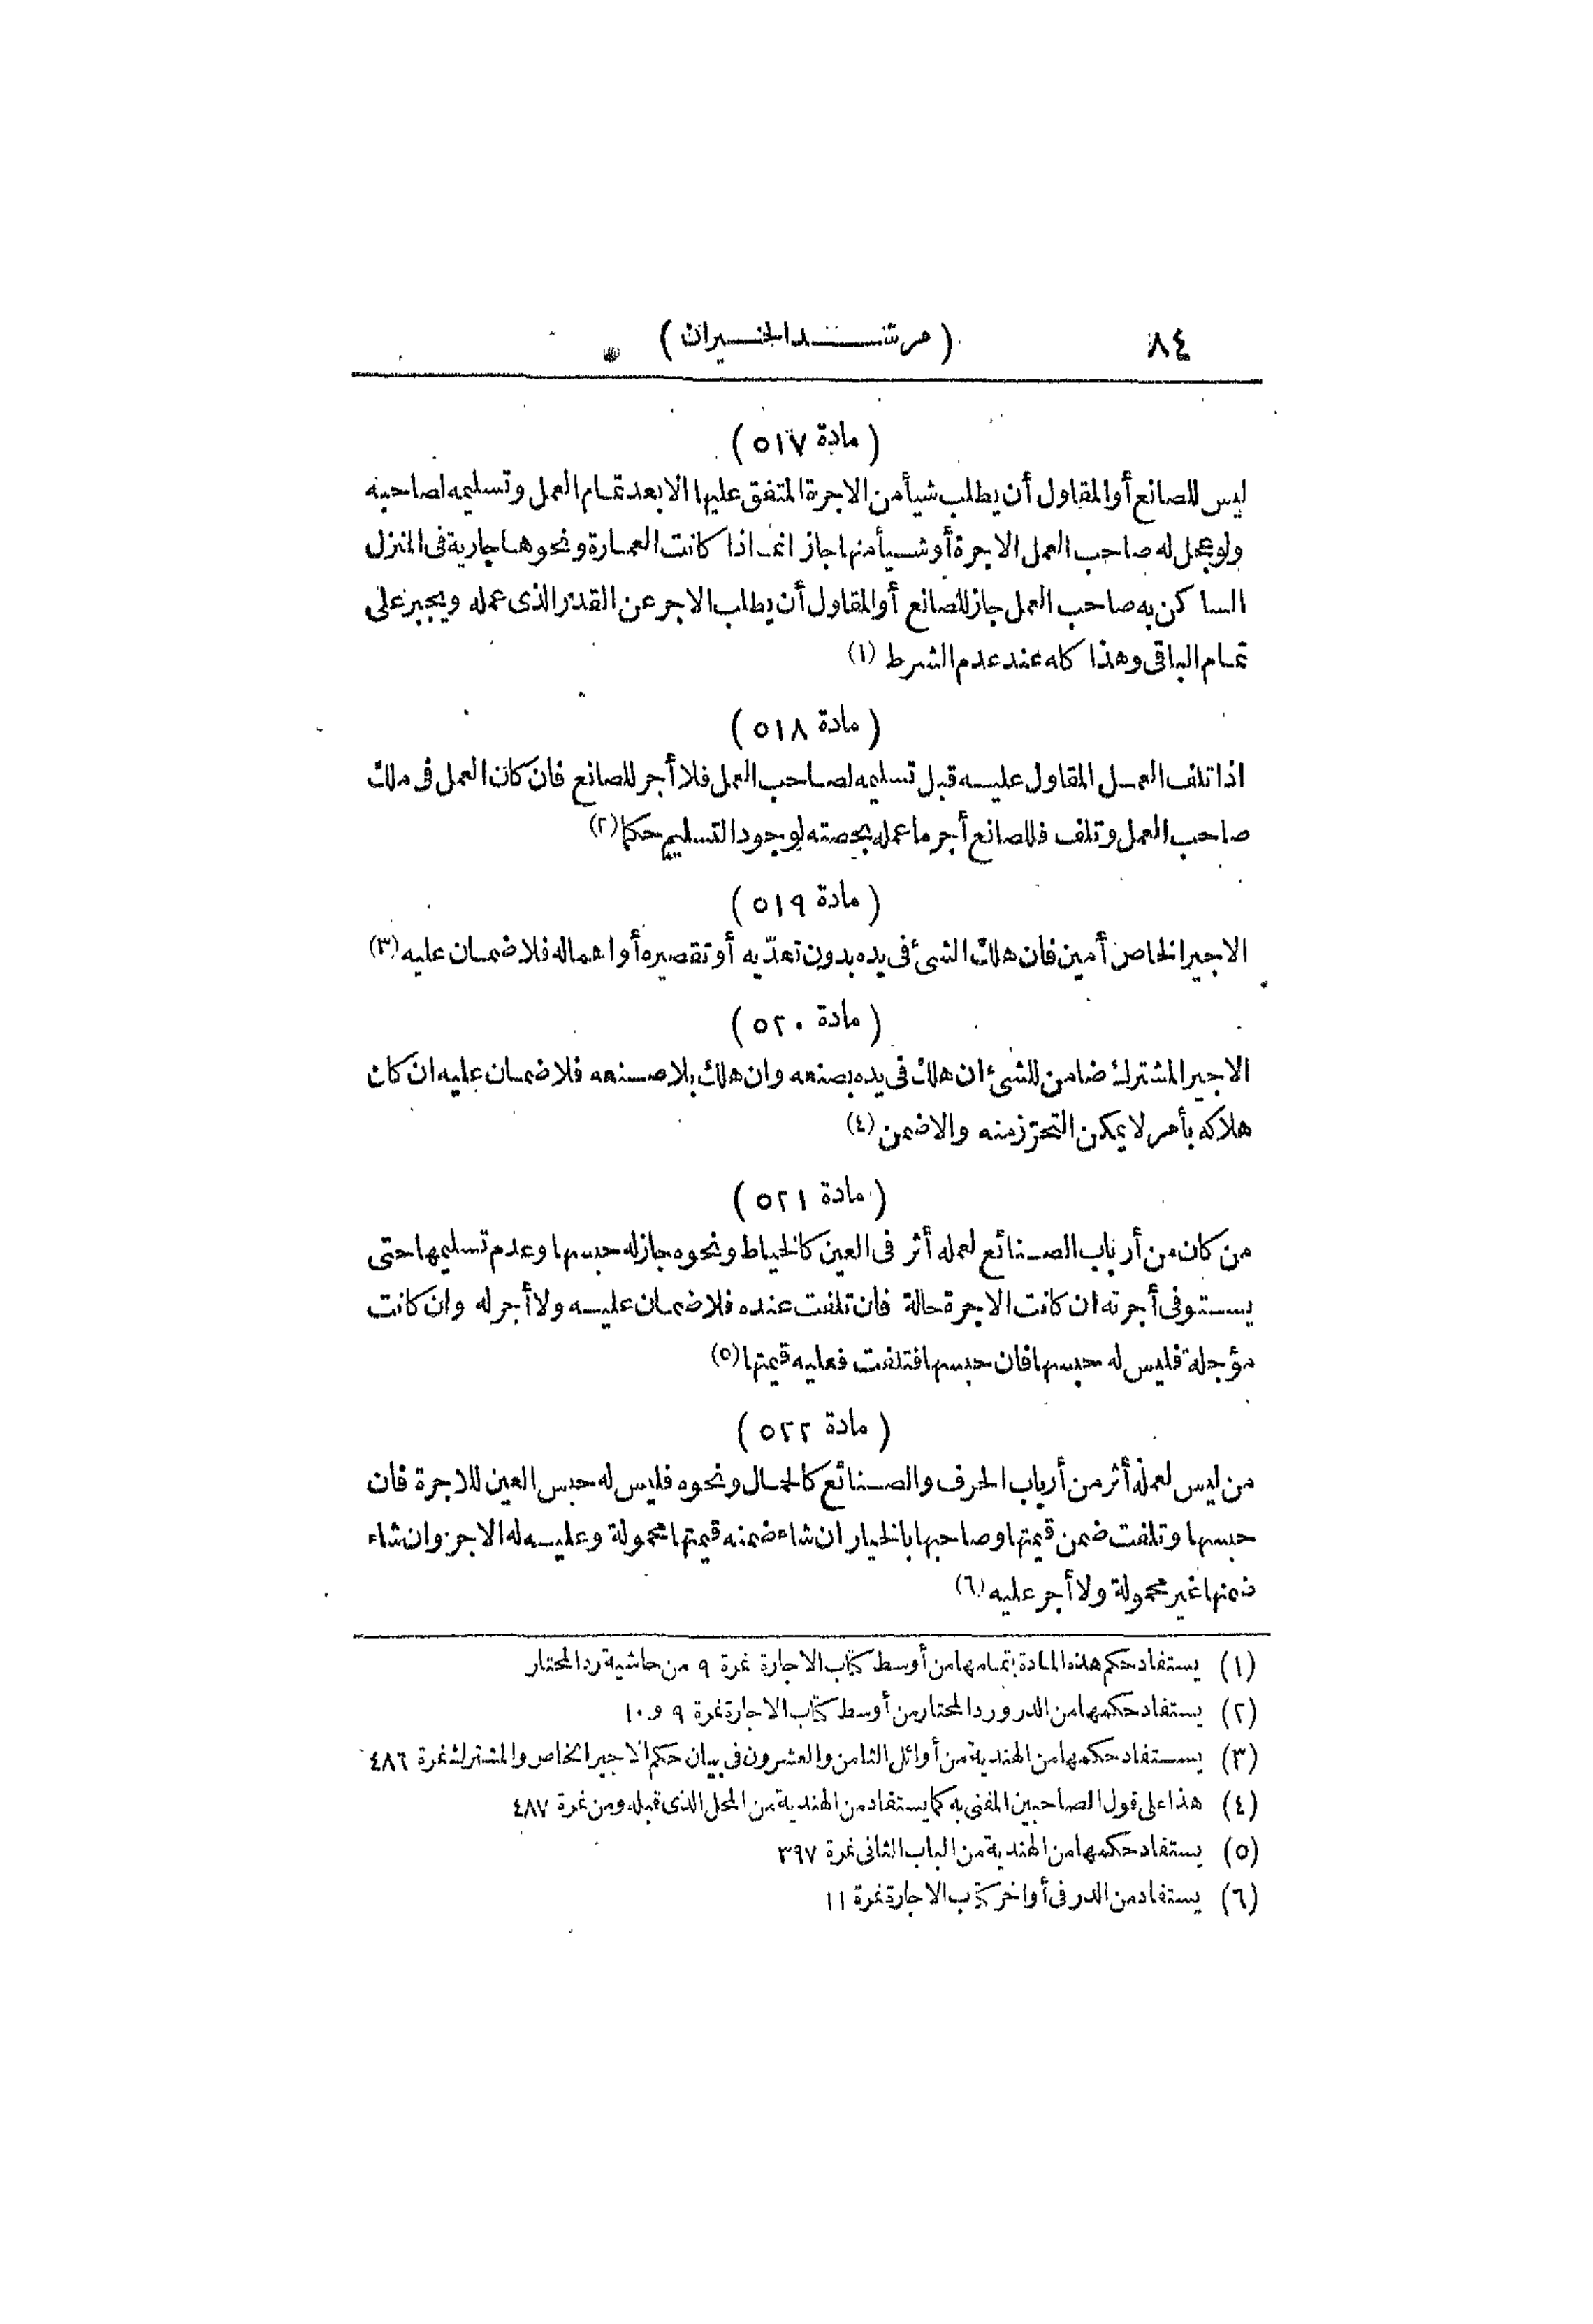 ٨٤ (مرشد الحيران)
(مادة ٥١٧)
ليس للصانع أو المقاول أن يطلب شيأ من الاجرة المتفق عليها الا بعد تمام العمل وتسليمه لصاحبه
ولو عجل له صاحب العمل الاجرة أو شيأ منها جاز انما اذا كانت العمارة ونحوها جارية فى المنزل
الساكن به صاحب العمل جاز للصانع أو المقاول أن يطلب الاجر عن القدر الذى عمله ويجبر على
تمام الباقى وهذا كله عند عدم الشرط (١)
(مادة ٥١٨)
اذا تلف العمل المقاول عليه قبل تسليمه لصاحب العمل فلا أجر للصانع فان كان العمل فى ملك
صاحب العمل وتلف فللصانع أجر ما عمله بحصته لوجود التسليم حكما (٢)
(مادة ٥١٩)
الاجير الخاص أمين فان هلك الشئ فى يده بدون تعدّيه أو تقصيره أو اهماله فلا ضمان عليه (٣)
(مادة ٥٢٠)
الاجير المشترك ضامن للشئ ان هلك فى يده بصنعه وان هلك بلا صنعه فلا ضمان عليه ان كان
هلاكه بأمر لا يمكن التحرّز منه والا ضمن (٤)
(مادة ٥٢١)
من كان من أرباب الصنائع لعمله أثر فى العين كالخياط ونحوه جاز له حبسها وعدم تسليمها حتى
يستوفى أجرته ان كانت الاجرة حالة فان تلفت عنده فلا ضمان عليه ولا أجر له وان كانت
مؤجلة فليس له حبسها فان حبسها فتلفت فعليه قيمتها (٥)
(مادة ٥٢٢)
من ليس لعمله أثر من أرباب الحرف والصنائع كالحمال ونحوه فليس له حبس العين للاجرة فان
حبسها وتلفت ضمن قيمتها وصاحبها بالخيار ان شاء ضمنه قيمتها محمولة وعليه له الاجر وان شاء
ضمنها غير محمولة ولا أجر عليه (٦)
(١) يستفاد حكم هذه المادة بتمامها من أوسط كتاب الاجارة نمرة ٩ من حاشية رد المحتار
(٢) يستفاد حكمها من الدر ورد المحتار من أوسط كتاب الاجارة نمرة ٩ و ١٠
(٣) يستفاد حكمها من الهندية من أوائل الثامن والعشرون فى بيان حكم الاجير الخاص والمشترك نمرة ٤٨٦
(٤) هذا على قول الصاحبين المفتى به كما يستفاد من الهندية من المحل الذى قبله ومن نمرة ٤٨٧
(٥) يستفاد حكمها من الهندية من الباب الثانى نمرة ٣٩٧
(٦) يستفاد من الدر فى أواخر كتاب الاجارة نمرة ١١